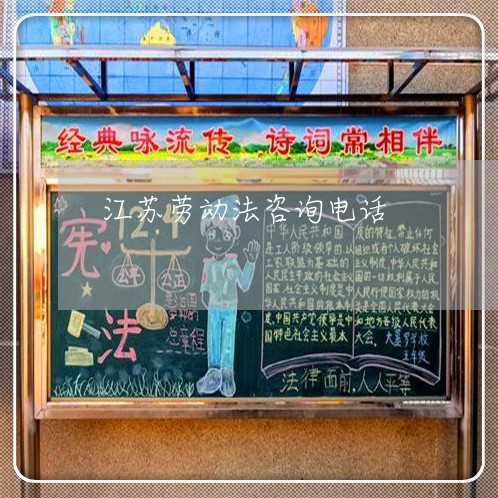 经典咏流传 诗词常相伴
江苏劳动法咨询电话
12.4
宪法
公平
公正
总章程
中华人民共和国
是工人阶级领导的,以
工农联盟为基础的
人民民主专政的社会主义
国家,社会主义制度是中
华人民共和国的根本制
度,中国共产党领导是中
国特色社会主义最本
质的特征,禁止任何
组织或者个人破坏社会
主义制度,中华人民共和
国的一切权利属于人民,
人民行使国家权力的机
关是全国人民代表大会
和地方各级人民代表
大会.
五年级
法律面前,人人平等